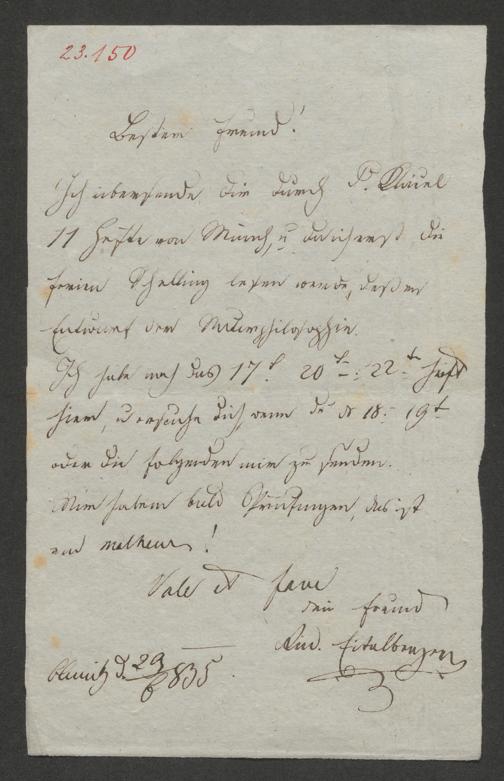 23.150
Bester Freund!
Ich übersende dir durch P. Klácel
11 Hefte von Münch, u da ich erst die
ferien Schelling lesen werde, dessen
Entwurf der Naturphilosophie.
Ich habe noch das 17t. 20te: 22te Heft
hier, u ersuche dich, wenn du N 18: 19t
oder die folgenden mir zu senden.
Wir haben bald Prüfungen, das ist
ein malheur!
Vale et fave
dein Freund
Rud. Eitelberger
Olmütz d. 29/6 835.